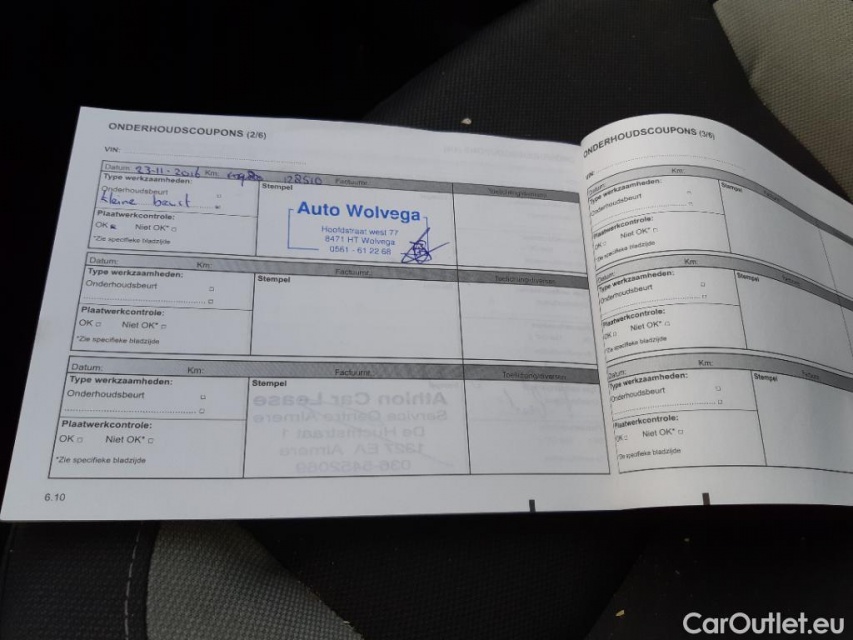 ONDERHOUDSCOUPONS (2/6)
VIN:
Datum: 23-11-2016 Km: 128510 Factuurnr.
Type werkzaamheden:
Stempel
Onderhoudsbeurt
kleine beurt
Plaatwerkcontrole:
OK Niet OK*
*Zie specifieke bladzijde
Auto Wolvega
Hoofdstraat west 77
8471 HT Wolvega
0561 - 61 22 68
Datum: Km: Factuurnr.
Type werkzaamheden:
Stempel
Onderhoudsbeurt
Plaatwerkcontrole:
OK Niet OK*
*Zie specifieke bladzijde
Datum: Km: Factuurnr.
Type werkzaamheden:
Stempel
Onderhoudsbeurt
Plaatwerkcontrole:
OK Niet OK*
*Zie specifieke bladzijde
Athlon Car Lease
Service Centre Almere
De Huchtstraat 1
1327 EA Almere
6.10
ONDERHOUDSCOUPONS (3/6)
VIN:
Datum: Km:
Type werkzaamheden:
Stempel
Onderhoudsbeurt
Plaatwerkcontrole:
OK Niet OK*
*Zie specifieke bladzijde
Datum: Km:
Type werkzaamheden:
Stempel
Onderhoudsbeurt
Plaatwerkcontrole:
OK Niet OK*
*Zie specifieke bladzijde
Datum: Km:
Type werkzaamheden:
Stempel
Onderhoudsbeurt
Plaatwerkcontrole:
OK Niet OK*
*Zie specifieke bladzijde
CarOutlet.eu